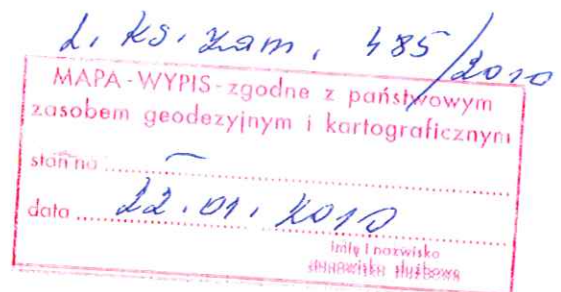 L. ks. zam. 485/2010
MAPA-WYPIS-zgodne z państwowym
zasobem geodezyjnym i kartograficznym
stan na ........ – ........
data ..... 22.01.2010 .....
imię i nazwisko
stanowisko służbowe